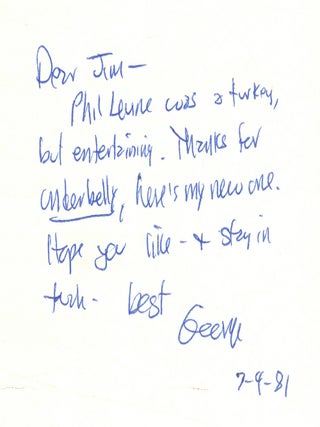 Dear Jim—
Phil Leune was a turkey,
but entertaining. Thanks for
underbelly, here's my new one.
Hope you like - & stay in
touch - best
George
7-9-81